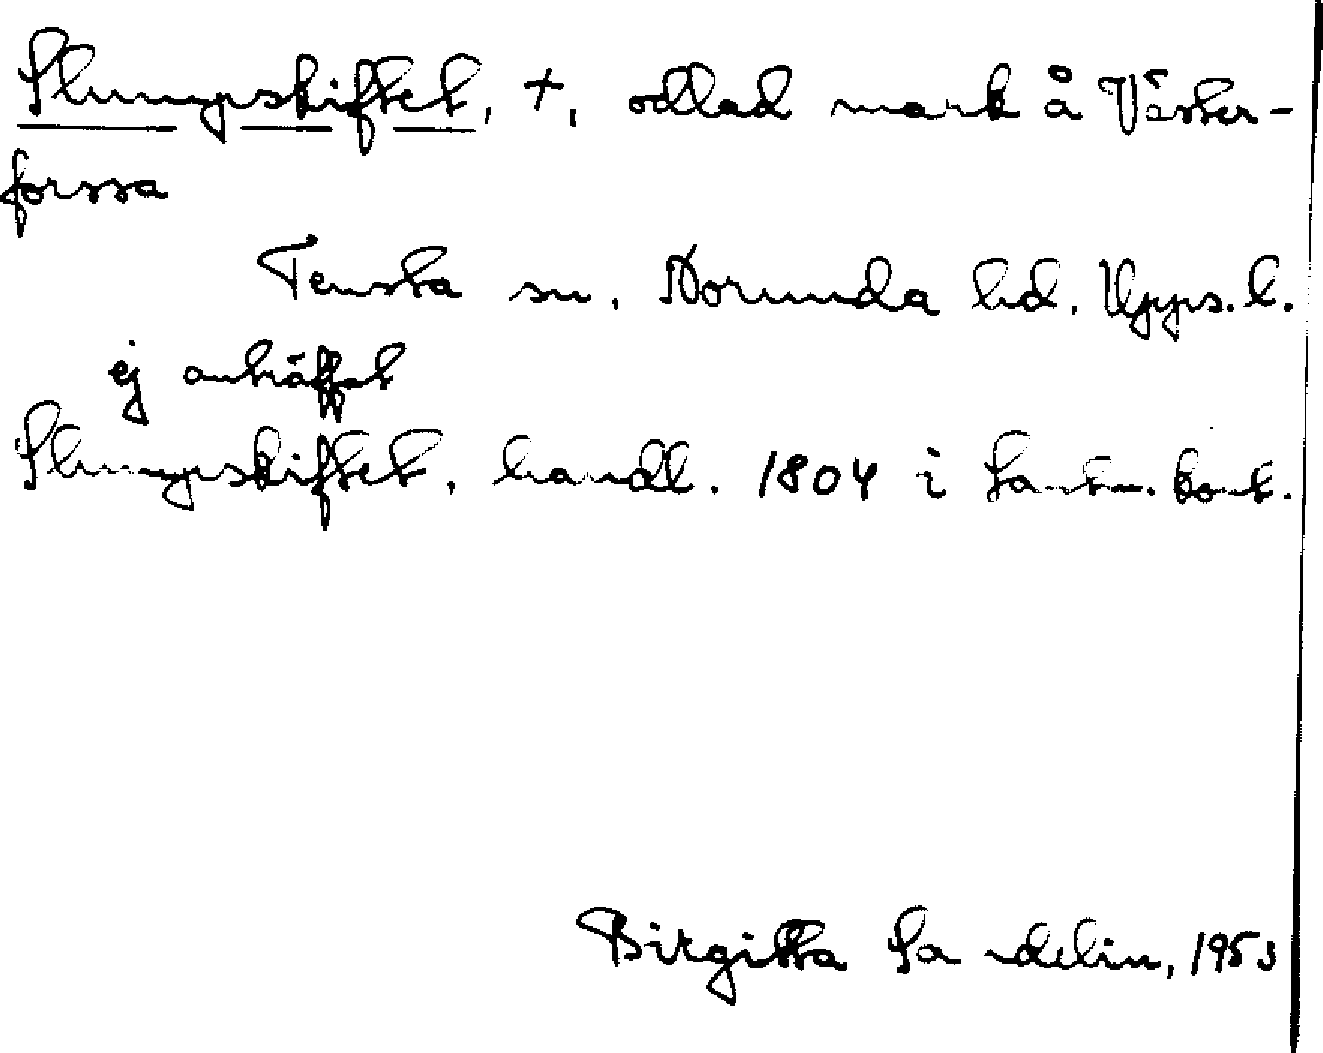 Slumpskiftet, +, odlad mark å Väster-
forssa
Tensta sn. Norunda hd. Upps. l.
ej anträffat
Slumpskiftet, handl. 1804 i Lantm. kont.
Birgitta Sandelin, 1953